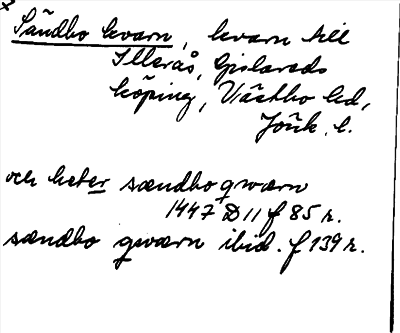 Sändbo kvarn, kvarn till
Illerås, Gislaveds
köping, Västbo hd,
Jönk. l.
och heter sændbo qwærn
1447 D 11 f 85 r.
sændbo qwærn ibid. f 139 r.